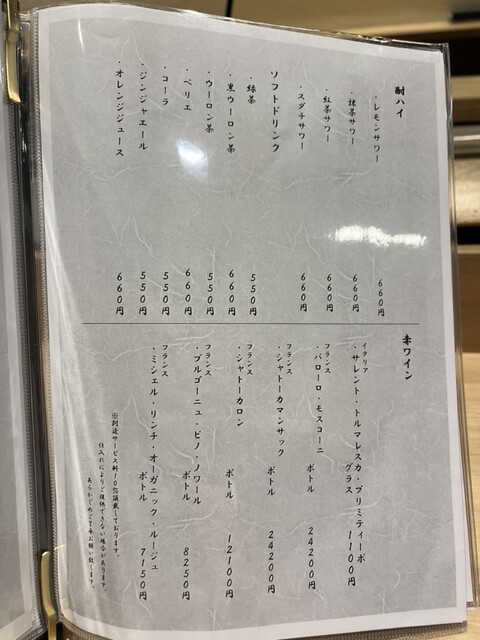 酎ハイ
・レモンサワー 660円
・抹茶サワー 660円
・紅茶サワー 660円
・スダチサワー 660円
ソフトドリンク
・緑茶 550円
・黒ウーロン茶 660円
・ウーロン茶 550円
・ペリエ 660円
・コーラ 550円
・ジンジャエール 550円
・オレンジジュース 660円
赤ワイン
イタリア
・サレント・トルマレスカ・プリミティーボ
グラス 1100円
フランス
・バローロ・モスコーニ
ボトル 24200円
フランス
・シャトーカマンサック
ボトル 24200円
フランス
・シャトーカロン
ボトル 12100円
フランス
・ブルゴーニュ・ピノ・ノワール
ボトル 8250円
フランス
・ミシェル・リンチ・オーガニック・ルージュ
ボトル 7150円
※別途サービス料10%頂戴しております。
仕入れによりご提供できない場合が有ります。
あらかじめご了承お願い致します。